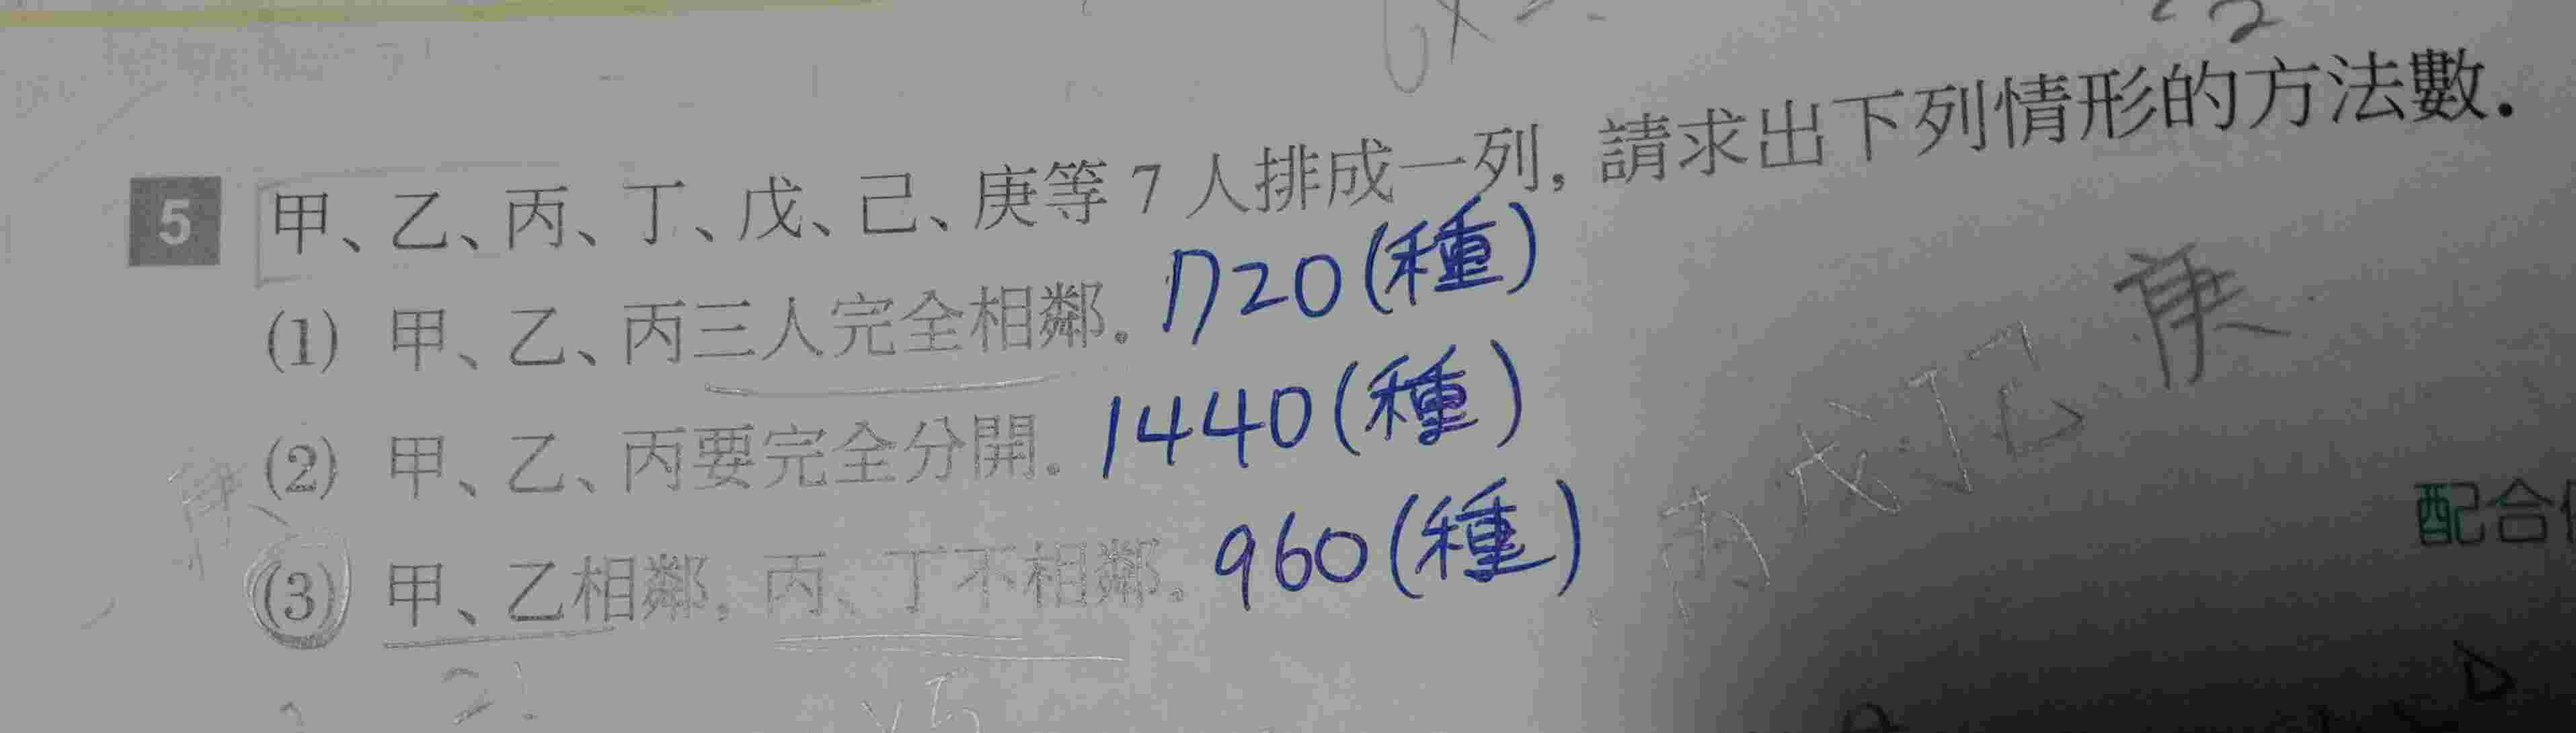 5 甲、乙、丙、丁、戊、己、庚等 7 人排成一列, 請求出下列情形的方法數.
(1) 甲、乙、丙三人完全相鄰. 720(種)
(2) 甲、乙、丙要完全分開. 1440(種)
(3) 甲、乙相鄰, 丙、丁不相鄰. 960(種)
丙戊丁己庚
配合
2!